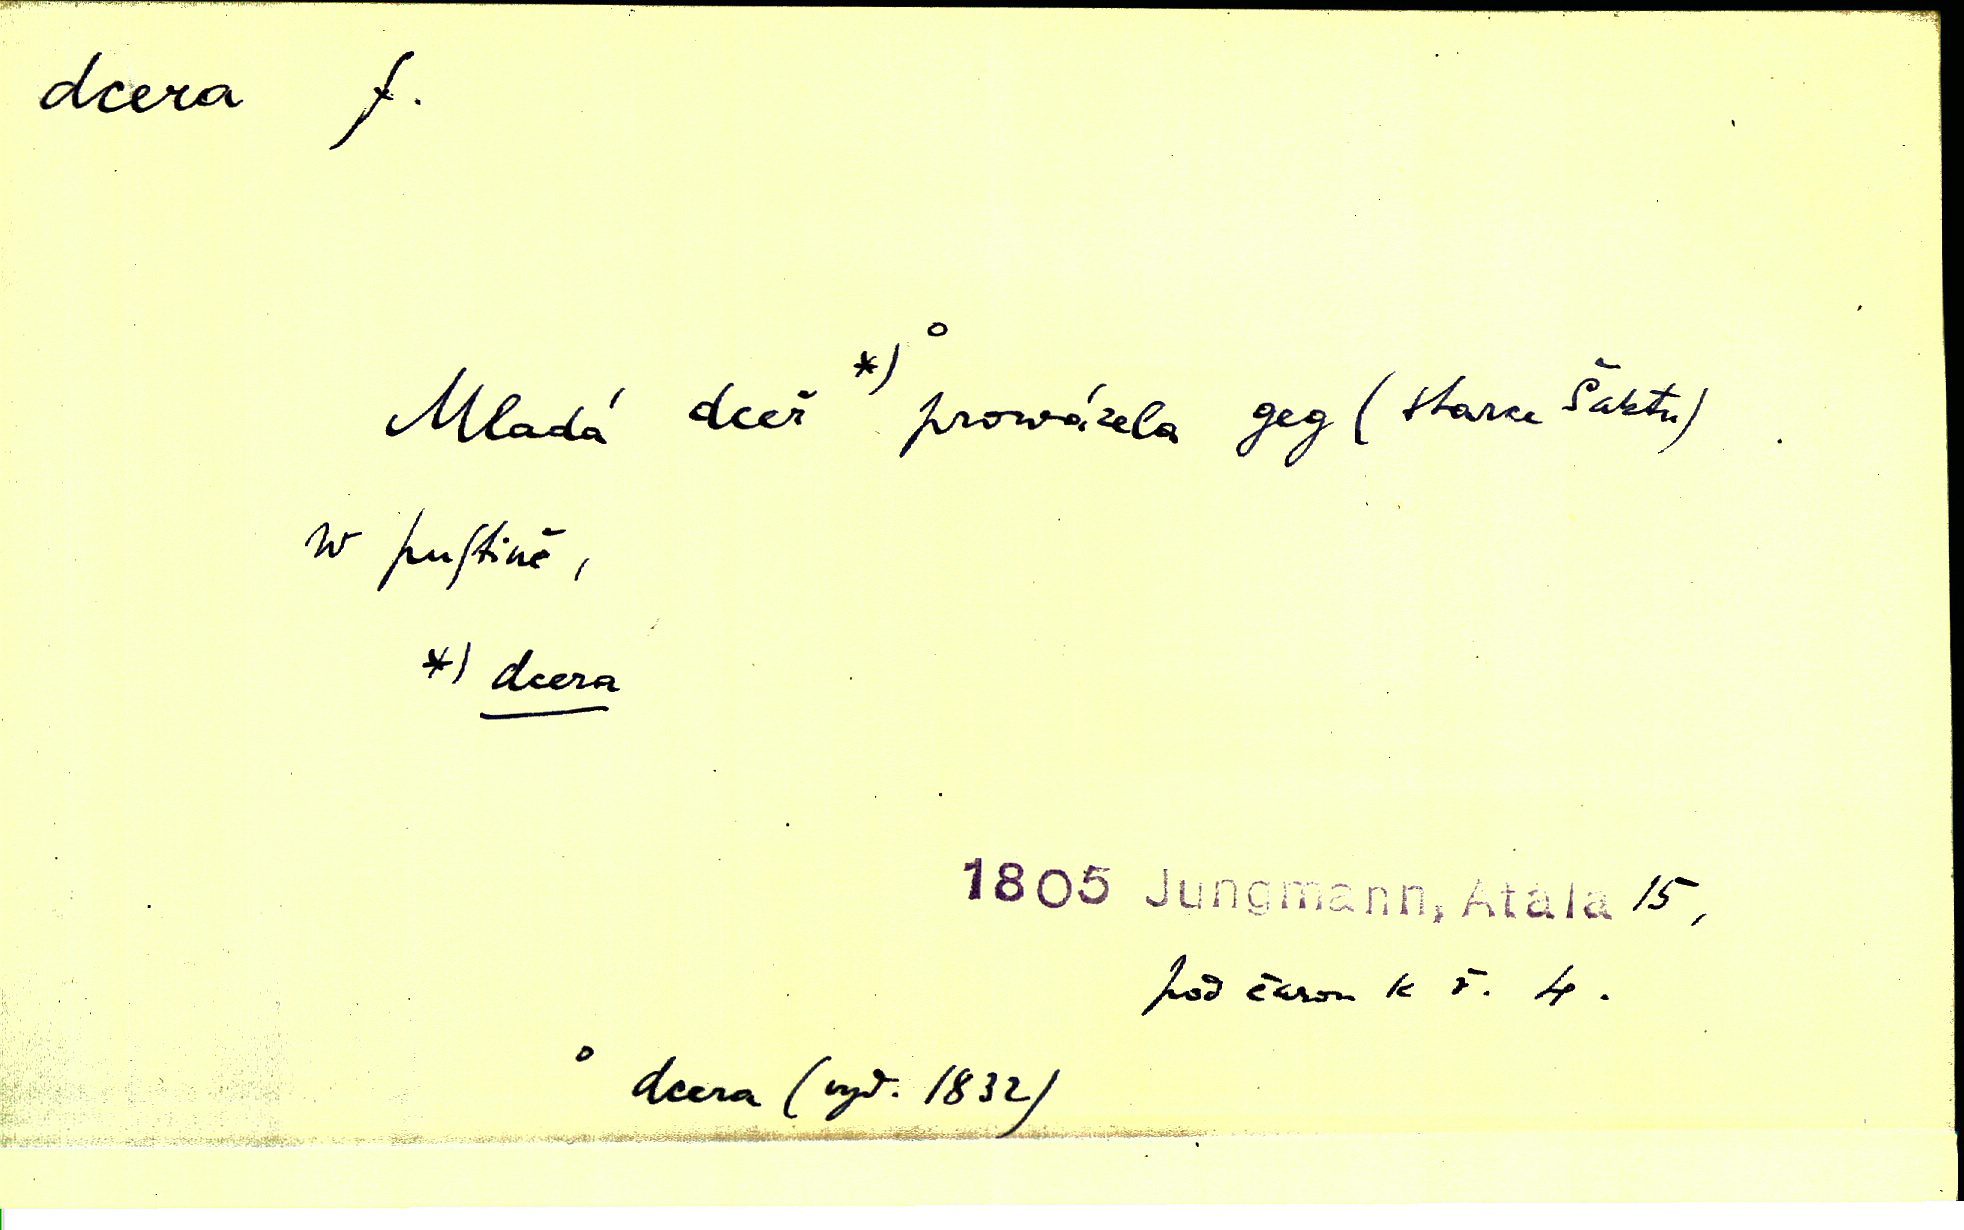 dcera f.
Mladá dceř *)° prowázela geg (starce Šaktu)
w puſtině,
*) dcera
1805 Jungmann, Atala 15,
pod čarou k ř. 4.
° dcera (vyd. 1832)